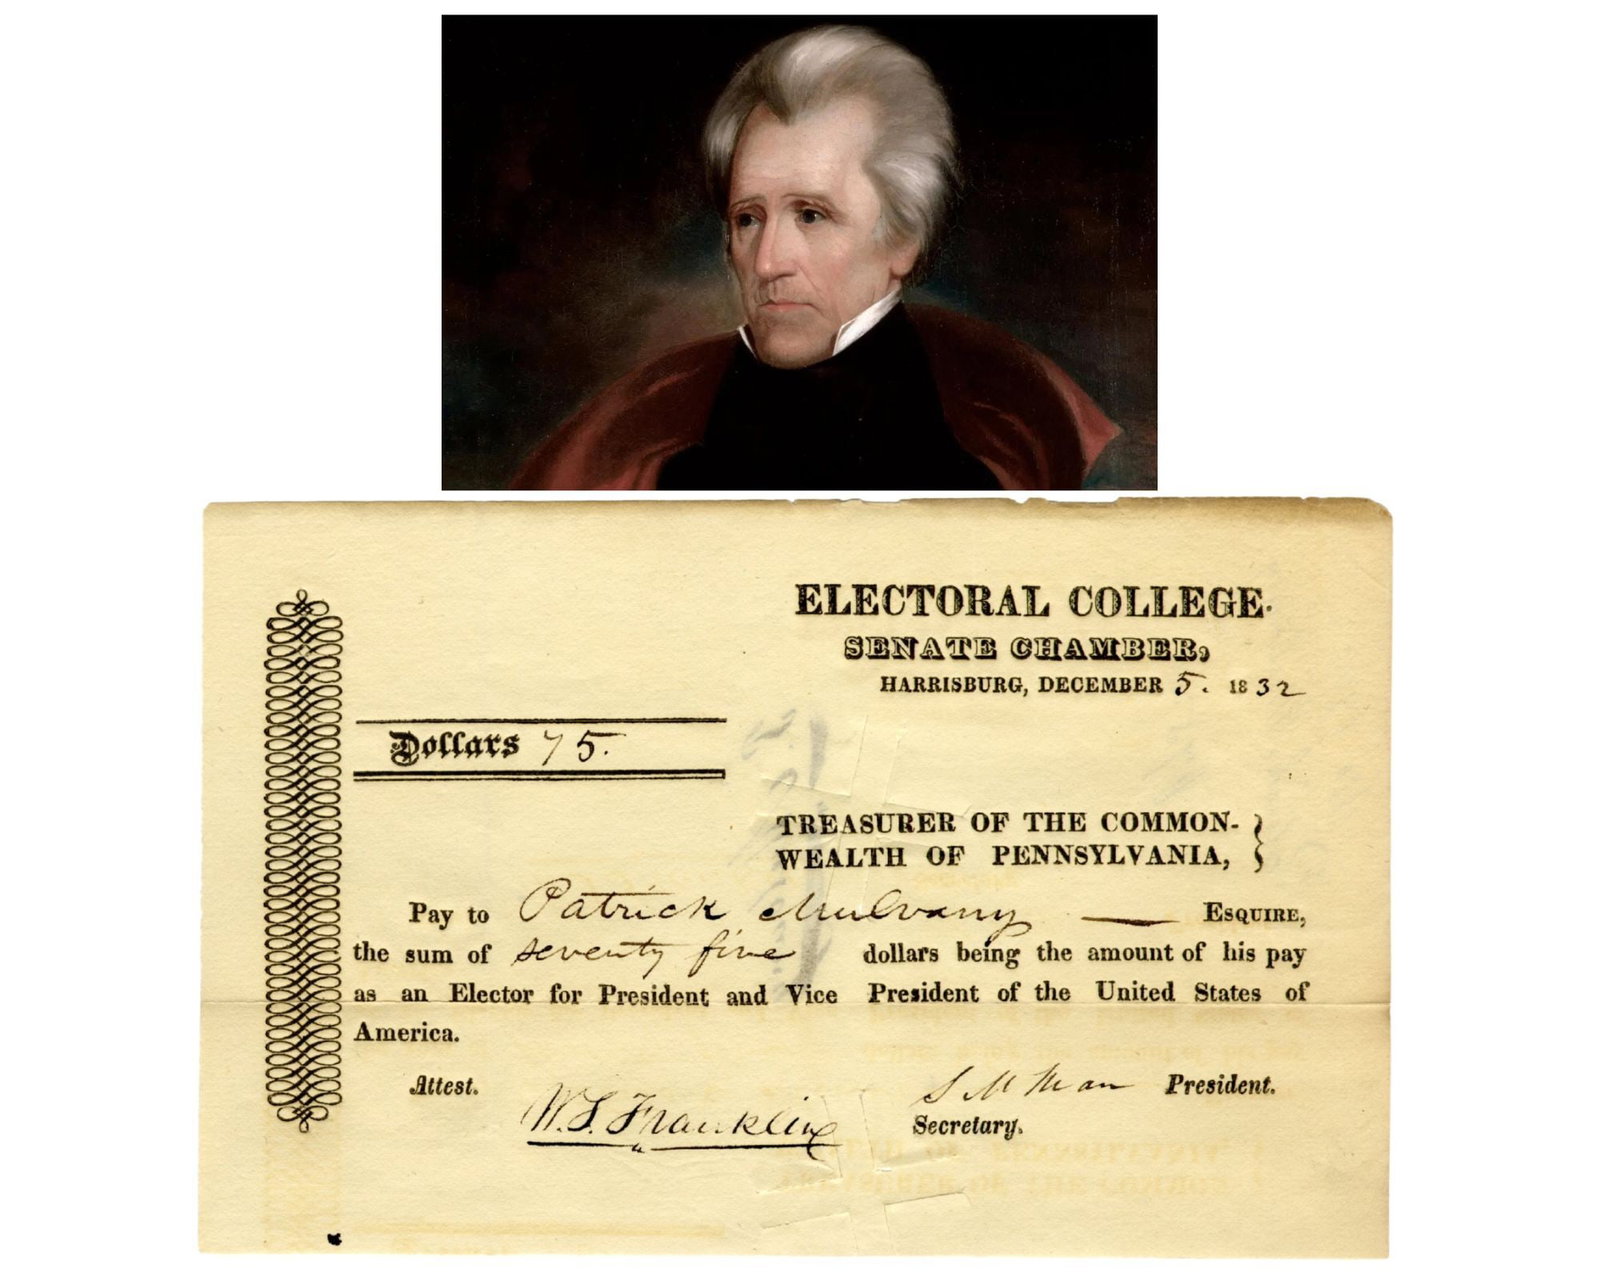 ELECTORAL COLLEGE.
SENATE CHAMBER,
HARRISBURG, DECEMBER 5. 1832
Dollars 75.
TREASURER OF THE COMMON-
WEALTH OF PENNSYLVANIA,
Pay to Patrick Mulvany — ESQUIRE,
the sum of seventy five dollars being the amount of his pay
as an Elector for President and Vice President of the United States of
America.
Attest. S M President.
W. S. Franklin Secretary.